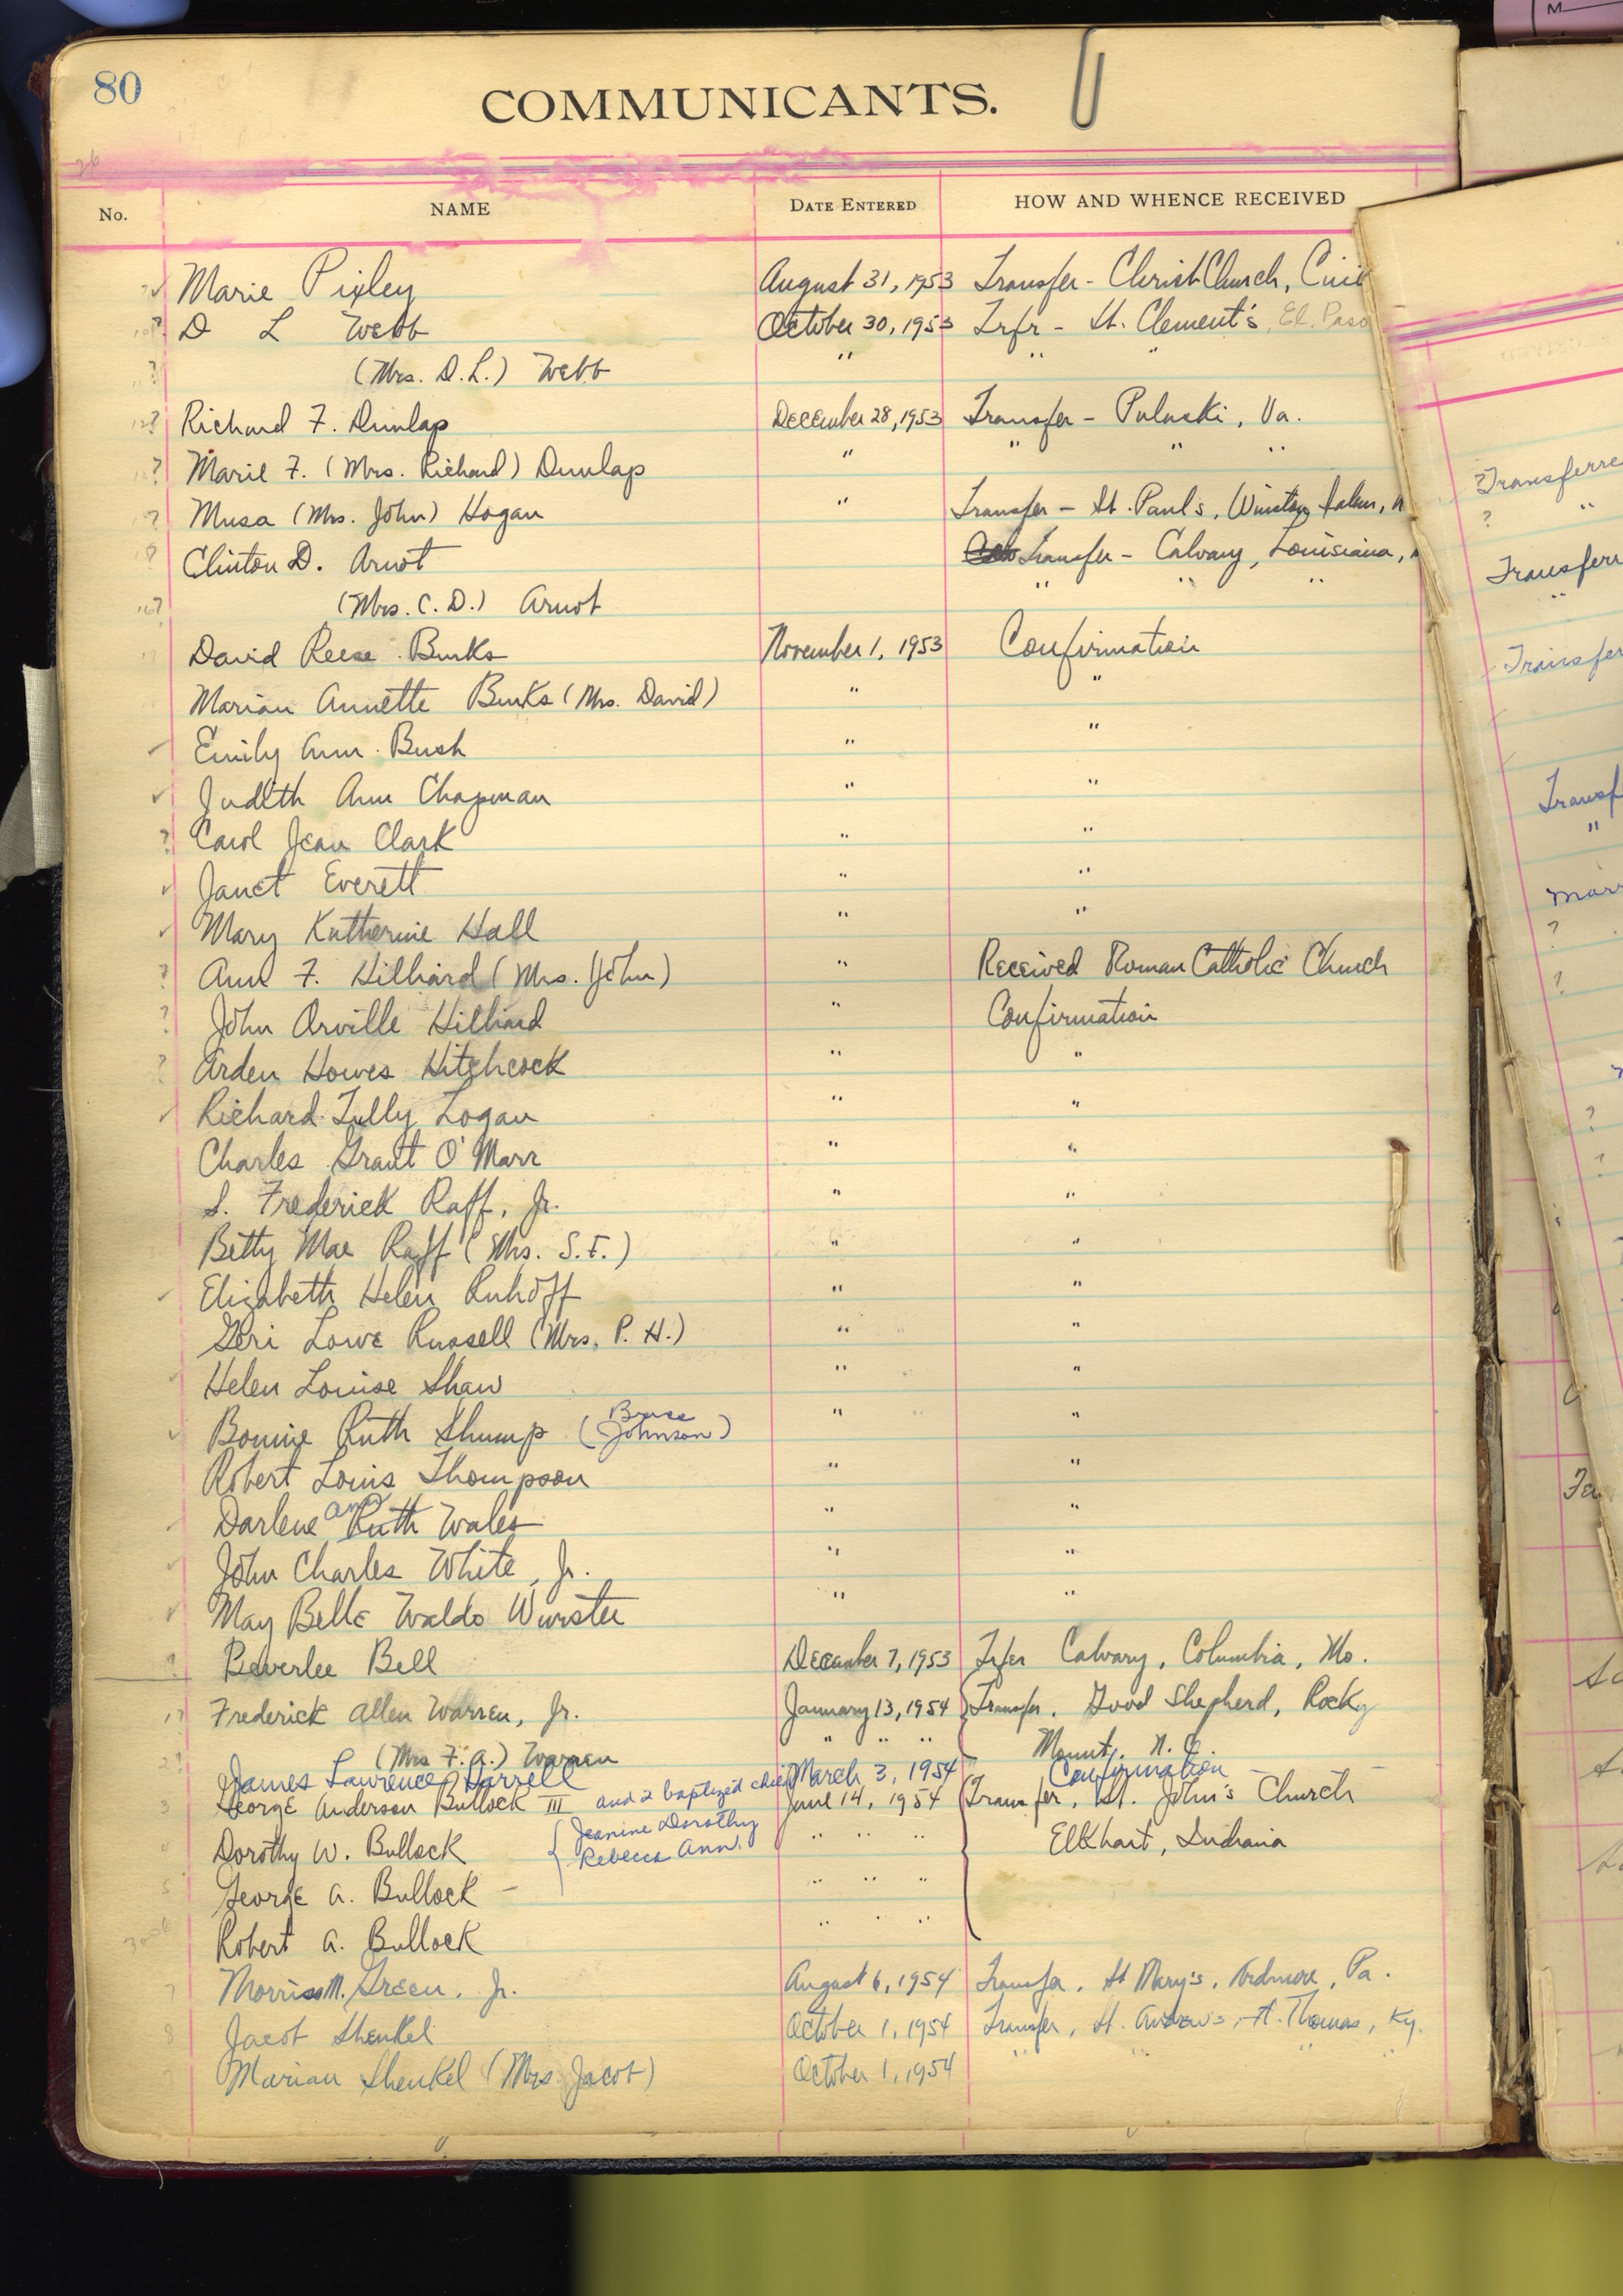 80
COMMUNICANTS.
No. NAME DATE ENTERED HOW AND WHENCE RECEIVED
Marie Pixley August 31, 1953 Transfer - Christ Church, Cinc
D L Webb October 30, 1953 Trfr - St. Clement's, El Paso
? (Mrs. D.L.) Webb " " "
? Richard F. Dunlap December 28, 1953 Transfer - Pulaski, Va.
? Marie F. (Mrs. Richard) Dunlap " " " "
? Musa (Mrs. John) Hogan " Transfer - St. Paul's, Winston Salem, N
? Clinton D. Arnot Transfer - Calvary, Louisiana,
? (Mrs. C. D.) Arnot " " "
David Reese Burks November 1, 1953 Confirmation
Marian Annette Burks (Mrs. David) " "
✓ Emily Ann Bush " "
✓ Judith Ann Chapman " "
? Carol Jean Clark " "
✓ Janet Everett " "
✓ Mary Katherine Hall " "
? Ann F. Hilliard (Mrs. John) " Received Roman Catholic Church
? John Orville Hilliard " Confirmation
? Arden Howes Hitchcock " "
✓ Richard Tully Logan " "
Charles Grant O'Marr " "
S. Frederick Raff, Jr. " "
Betty Mae Raff (Mrs. S.F.) " "
✓ Elizabeth Helen Ruhoff " "
Geri Lowe Russell (Mrs. P. H.) " "
✓ Helen Louise Shaw " "
✓ Bonnie Ruth Shump (Bruce Johnson) " "
Robert Louis Thompson " "
✓ Darlene Ann Ruth Wales " "
✓ John Charles White, Jr. " "
✓ May Belle Waldo Wurster " "
? Beverlee Bell December 7, 1953 Trfer Calvary, Columbia, Mo.
1? Frederick Allen Warren, Jr. January 13, 1954 Transfer, Good Shepherd, Rocky
2? (Mrs F.A.) Warren " " " Mount, N.C.
James Lawrence Harrell March 3, 1954 Confirmation
3 George Anderson Bullock III and 2 baptized child June 14, 1954 Transfer, St. John's Church
4 Dorothy W. Bullock Jeanine Dorothy " " " Elkhart, Indiana
Rebecca Ann.
5 George A. Bullock - " " "
6 Robert A. Bullock " " "
7 Morris M. Green, Jr. August 6, 1954 Transfer, St Mary's, Ardmore, Pa.
8 Jacob Shenkel October 1, 1954 Transfer, St. Andrew's, Ft. Thomas, Ky.
Marian Shenkel (Mrs Jacob) October 1, 1954 " " " "
M
?Transferre
? "
Transferr
"
Transfer
Transf
"
marr
?
?
?
?